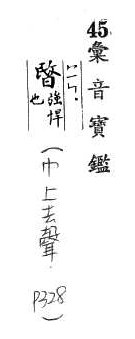 45.彙音寶鑑
暋 強悍也
(巾上去聲.
P328)